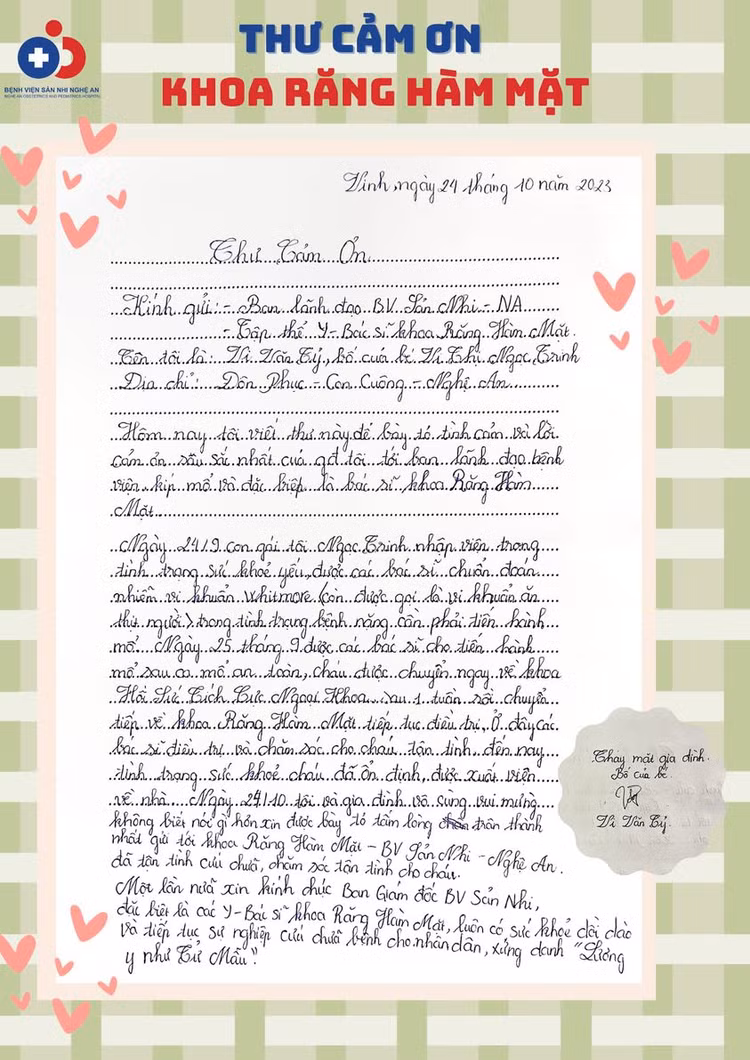 THƯ CẢM ƠN
KHOA RĂNG HÀM MẶT
BỆNH VIỆN SẢN NHI NGHỆ AN
NGHE AN OBSTETRICS AND PEDIATRICS HOSPITAL
Vinh, ngày 24 tháng 10 năm 2023
Thư Cảm Ơn
Kính gửi: - Ban lãnh đạo BV Sản Nhi - NA
- Tập thể Y - Bác sĩ khoa Răng Hàm Mặt.
Tên tôi là: Vi Văn Tý, bố của bé Vi Thị Ngọc Trinh
Địa chỉ: Đôn Phục - Con Cuông - Nghệ An
Hôm nay tôi viết thư này để bày tỏ tình cảm và lời
cảm ơn sâu sắc nhất của gđ tôi tới ban lãnh đạo bệnh
viện, kíp mổ và đặc biệt là bác sĩ khoa Răng Hàm
Mặt.
Ngày 24/9 con gái tôi Ngọc Trinh nhập viện trong
tình trạng sức khoẻ yếu, được các bác sĩ chuẩn đoán
nhiễm vi khuẩn Whitmore (còn được gọi là vi khuẩn ăn
thịt người) trong tình trạng bệnh nặng cần phải tiến hành
mổ. Ngày 25 tháng 9 được các bác sĩ cho tiến hành
mổ sau ca mổ an toàn, cháu được chuyển ngay về khoa
Hồi Sức Tích Cực Ngoại Khoa sau 1 tuần rồi chuyển
tiếp về khoa Răng Hàm Mặt tiếp tục điều trị. Ở đây các
bác sĩ điều trị và chăm sóc cho cháu tận tình đến nay
tình trạng sức khoẻ cháu đã ổn định, được xuất viện
về nhà. Ngày 24/10 tôi và gia đình vô cùng vui mừng
không biết nói gì hơn xin được bày tỏ tấm lòng trân thành
nhất gửi tới khoa Răng Hàm Mặt - BV Sản Nhi - Nghệ An.
đã tận tình cứu chữa, chăm sóc tận tình cho cháu.
Một lần nữa xin kính chúc Ban Giám đốc BV Sản Nhi,
đặc biệt là các Y - Bác sĩ khoa Răng Hàm Mặt, luôn có sức khoẻ dồi dào
và tiếp tục sự nghiệp cứu chữa bệnh cho nhân dân, xứng danh "Lương
y như Từ Mẫu".
Thay mặt gia đình.
Bố của bé.
Vi Văn Tý.